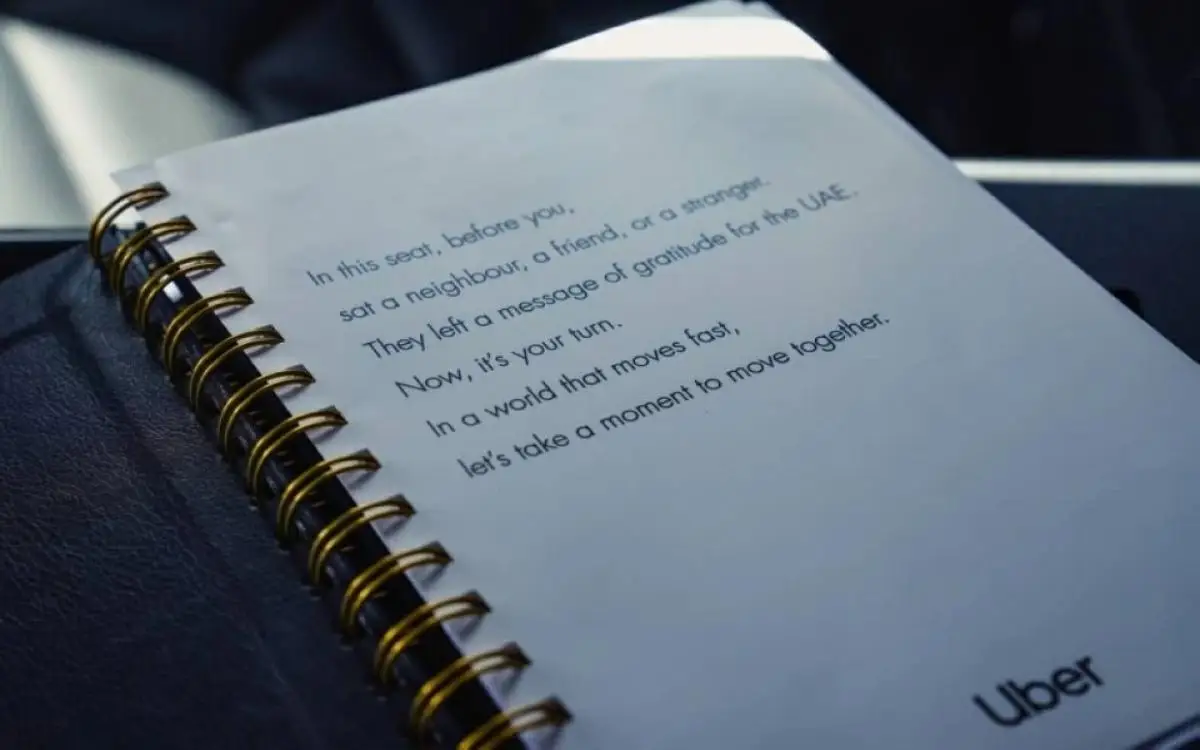 In this seat, before you,
sat a neighbour, a friend, or a stranger.
They left a message of gratitude for the UAE.
Now, it's your turn.
In a world that moves fast,
let's take a moment to move together.
Uber